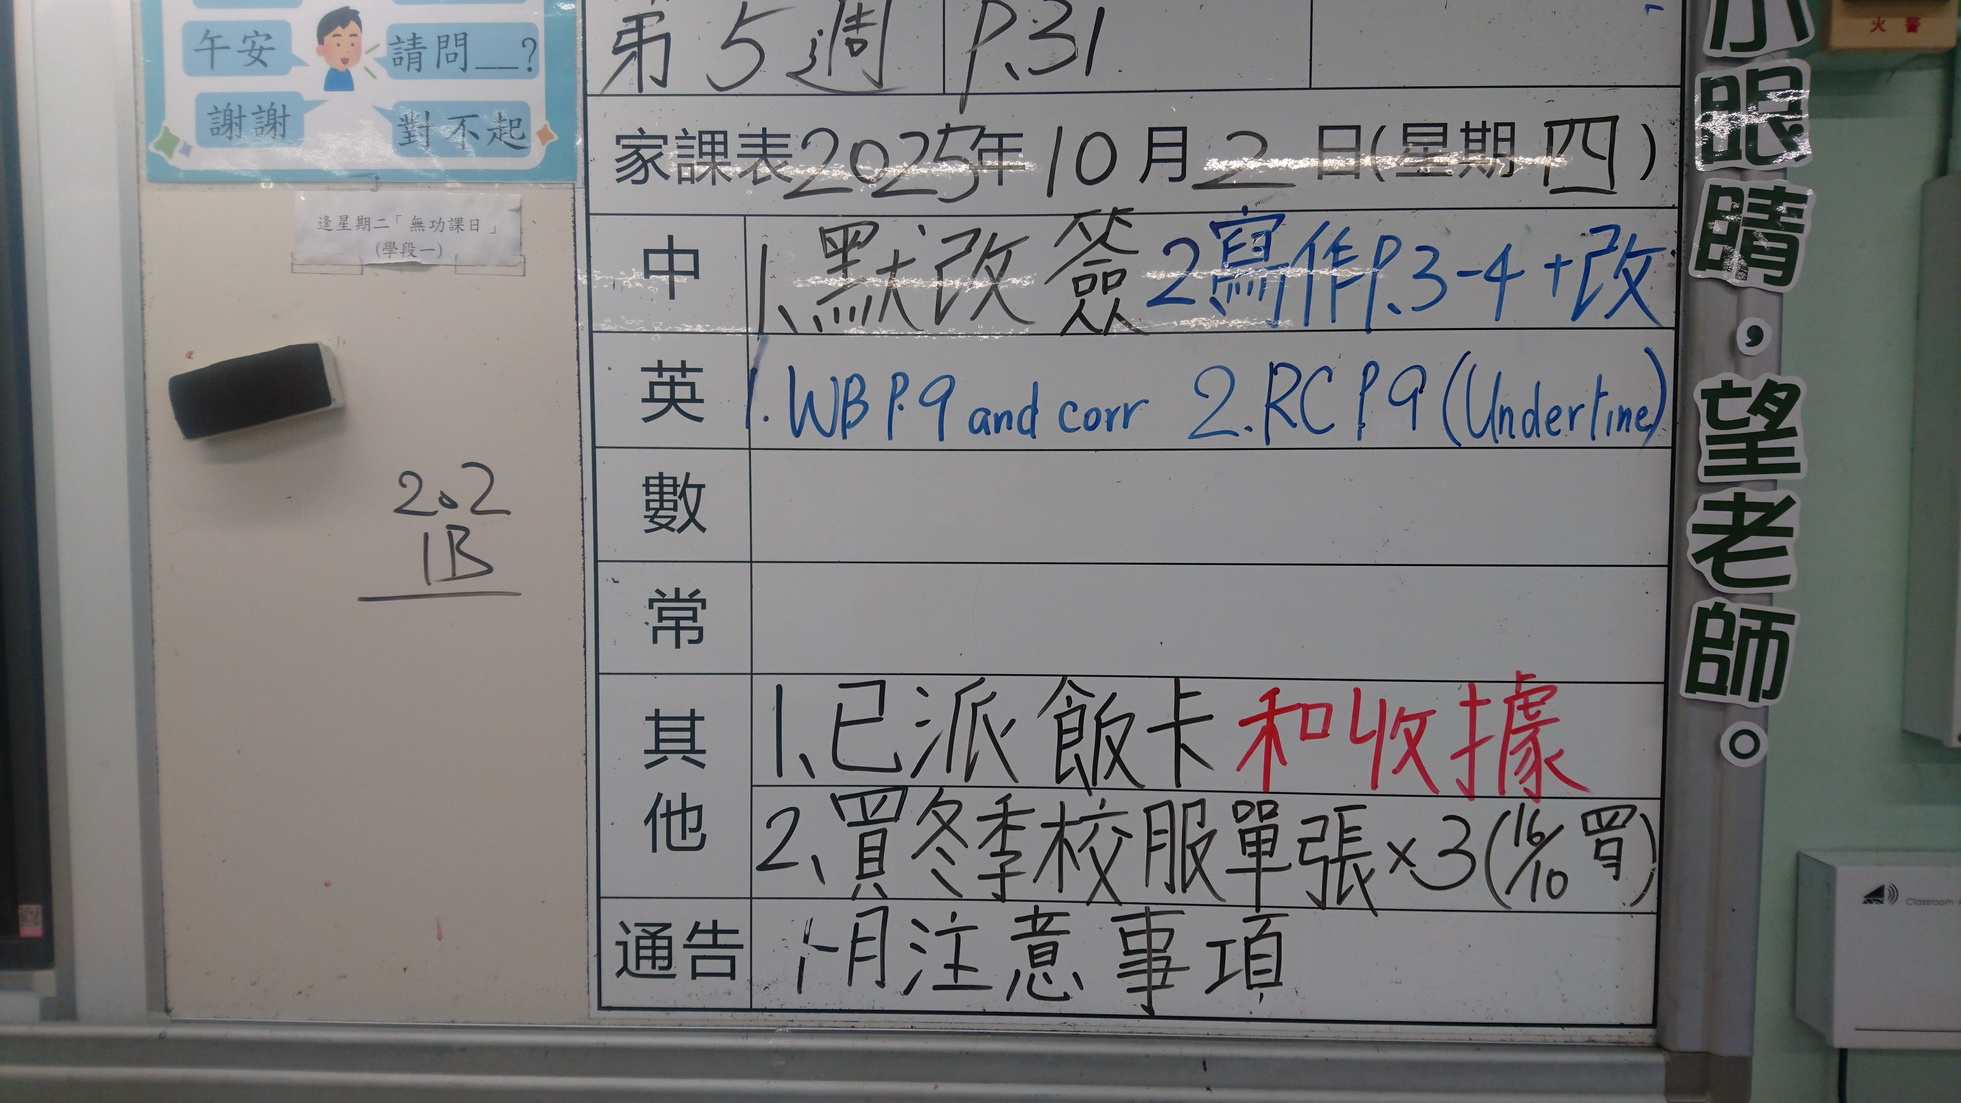 午安
請問__?
謝謝
對不起
逢星期二「無功課日」
(學段一)
202
1B
第5週 P.31
家課表2025年10月2日(星期四)
中 1、默改簽 2寫作P.3-4+改
英 1.WB P.9 and corr 2.RC P9 (Underline)
數
常
其他 1、已派飯卡和收據
2、買冬季校服單張×3(16/10買)
通告 十月注意事項
小眼睛，望老師。
火警
Classroom